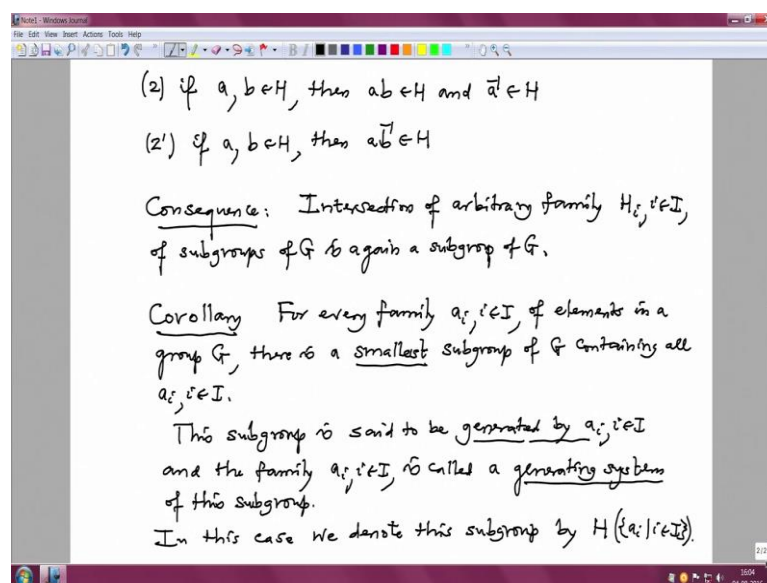 Note1 - Windows Journal
File Edit View Insert Actions Tools Help
(2) if a, b ∈ H, then ab ∈ H and a⁻¹ ∈ H
(2') if a, b ∈ H, then ab⁻¹ ∈ H
Consequence: Intersection of arbitrary family Hᵢ, i∈I,
of subgroups of G is again a subgrop of G.
Corollary For every family aᵢ, i∈I, of elements in a
group G, there is a smallest subgroup of G containing all
aᵢ, i∈I.
This subgroup is said to be generated by aᵢ, i∈I
and the family aᵢ, i∈I, is called a generating system
of this subgroup.
In this case we denote this subgroup by H({aᵢ | i∈I}).
2/2
16:04